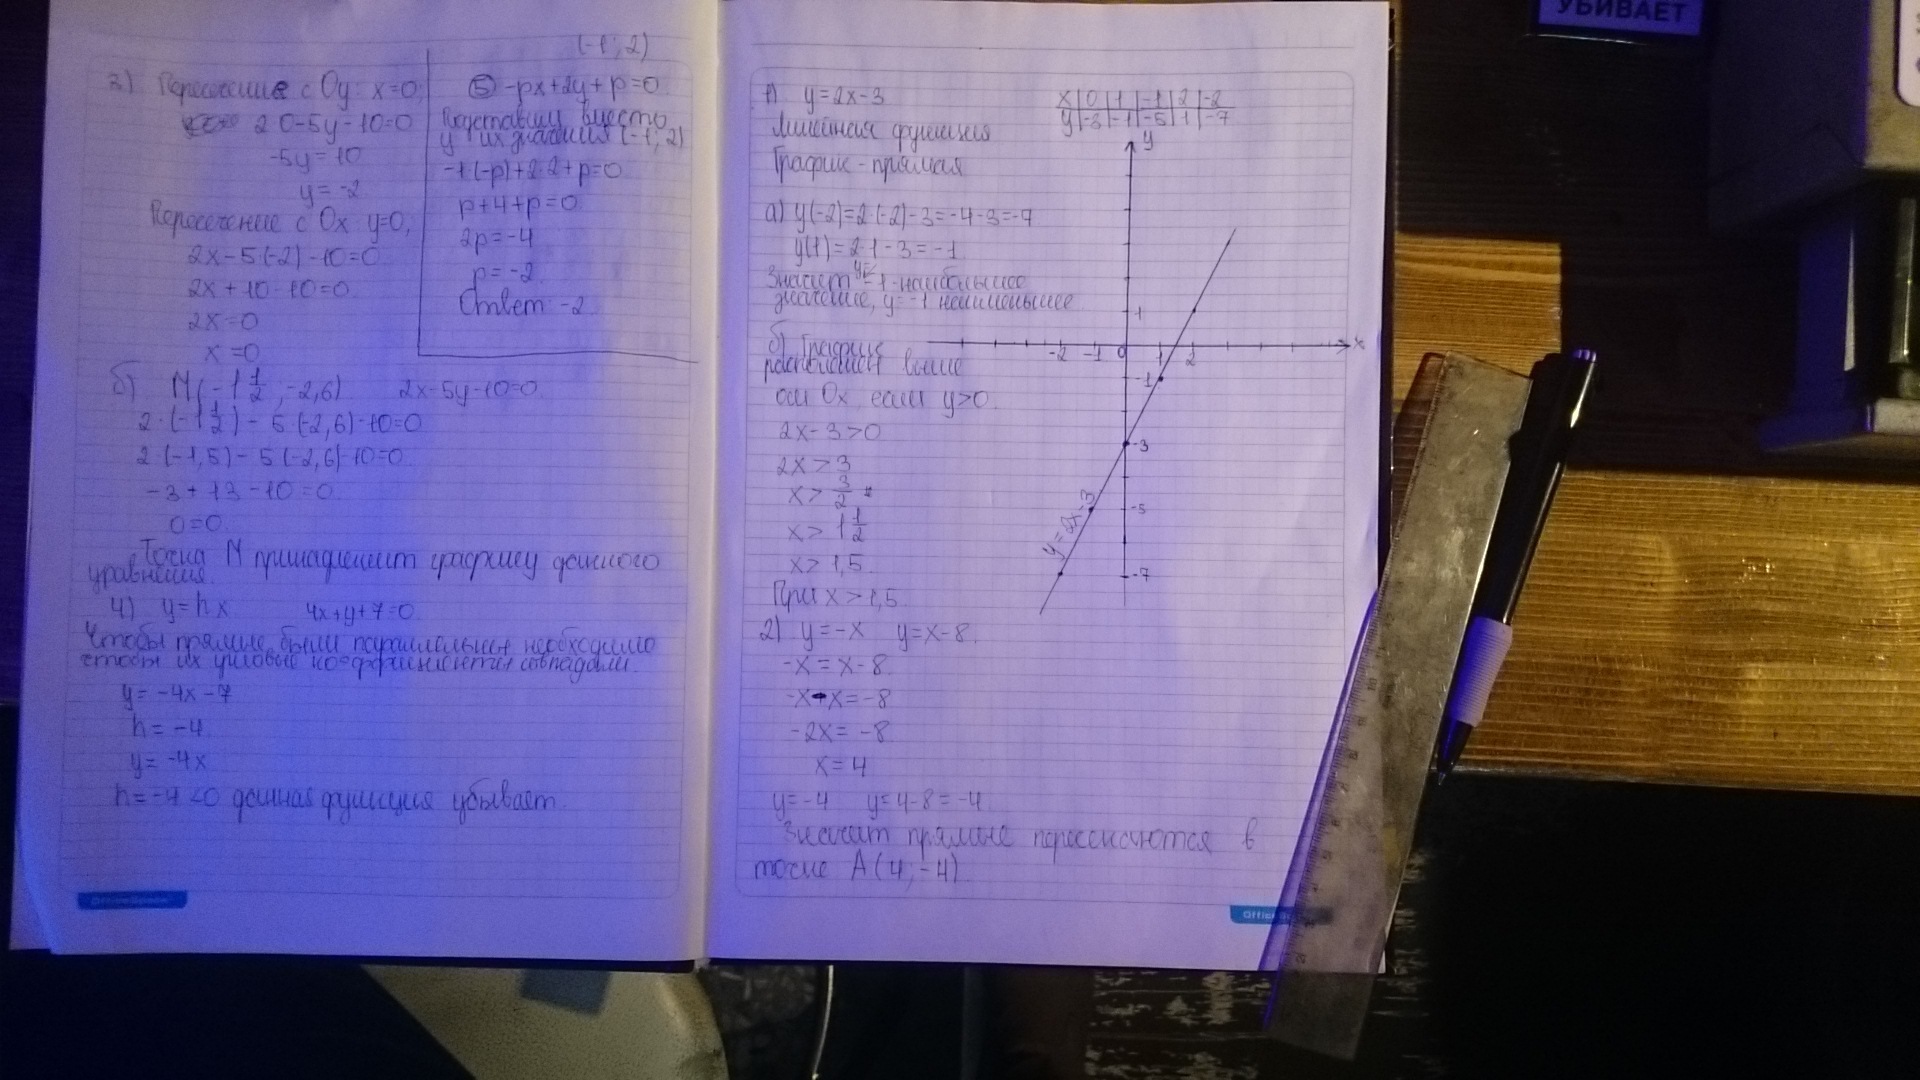 (-1; 2)
3) Пересечение с Oy: x=0
2·0-5y-10=0
-5y=10
y=-2
Пересечение с Ox y=0,
2x-5·(-2)-10=0
2x+10-10=0
2x=0
x=0
5 -px+2y+p=0
Подставим вместо
y их значения (-1; 2)
-1·(-p)+2·2+p=0
p+4+p=0
2p=-4
p=-2
Ответ -2
б) M(-1 1/2; -2,6) 2x-5y-10=0
2·(-1 1/2)-5·(-2,6)-10=0
2·(-1,5)-5·(-2,6)-10=0
-3+13-10=0
0=0
Точка M принадлежит графику данного
уравнения.
4) y=kx 4x+y+7=0
Чтобы прямые были параллельны необходимо
чтобы их угловые коэффициенты совпадали.
y=-4x-7
k=-4
y=-4x
k=-4<0 данная функция убывает
1) y=2x-3
Линейная функция
График-прямая
x 0 1 -1 2 -2
y -3 -1 -5 1 -7
а) y(-2)=2·(-2)-3=-4-3=-7
y(1)=2·1-3=-1
Значит -1 наибольшее
значение, y=-1 наименьшее
б) График
расположен выше
оси Ox, если y>0
2x-3>0
2x>3
x>3/2
x>1 1/2
x>1,5
При x>1,5
y
1
-2 -1 0 1 2 x
-1
-3
-5
-7
y=2x-3
2) y=-x y=x-8
-x=x-8
-x-x=-8
-2x=-8
x=4
y=-4 y=4-8=-4
Значит прямые пересекаются в
точке A(4; -4)
OfficeSpace
УБИВАЕТ